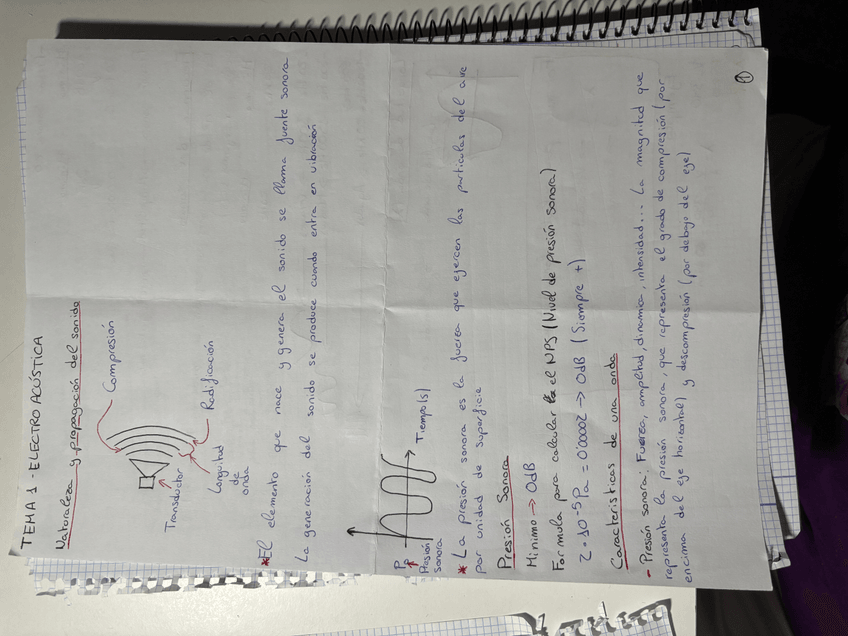 TEMA 1 - ELECTROACÚSTICA
Naturaleza y propagación del sonido
Compresión
Transductor
Longuitud
de
onda
Radificación
*El elemento que nace y genera el sonido se llama fuente sonora
La generación del sonido se produce cuando entra en vibración
Presión
sonora
Tiempo(s)
* La presión sonora es la fuerza que ejercen las partículas del aire
por unidad de superficie
Presión Sonora
Mínimo → 0dB
Formula para calcular el NPS (Nivel de presión sonora)
2·10⁻⁵Pa = 0'00002 → 0dB (Siempre +)
Características de una onda
- Presión sonora: Fuerza, amplitud, dinamica, intensidad... La magnitud que
representa la presión sonora, que representa el grado de compresión (por
encima del eje horizontal) y descompresión (por debajo del eje)
1